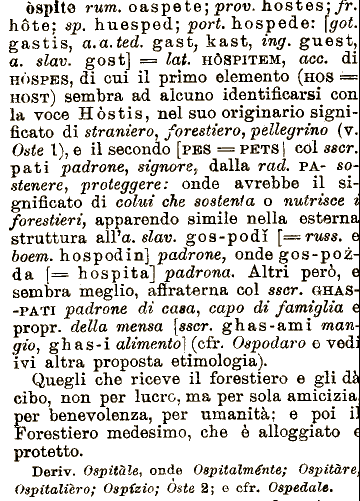 òspite rum. oaspete; prov. hostes; fr.
hôte; sp. huesped; port. hospede: [got.
gastis, a.a.ted. gast, kast, ing. guest,
a. slav. gost] = lat. HÒSPITEM, acc. di
HÒSPES, di cui il primo elemento (HOS =
HOST) sembra ad alcuno identificarsi con
la voce Hòstis, nel suo originario signi-
ficato di straniero, forestiero, pellegrino (v.
Oste 1), e il secondo [PES = PETS] col sscr.
pati padrone, signore, dalla rad. PA- so-
stenere, proteggere: onde avrebbe il si-
gnificato di colui che sostenta o nutrisce i
forestieri, apparendo simile nella esterna
struttura all'a. slav. gos-podĭ [= russ. e
boem. hospodin] padrone, onde gos-poż-
da [= hospita] padrona. Altri però, e
sembra meglio, affraterna col sscr. GHAS-
-PATI padrone di casa, capo di famiglia e
propr. della mensa [sscr. ghas-ami man-
gio, ghas-i alimento] (cfr. Ospodaro e vedi
ivi altra proposta etimologia).
Quegli che riceve il forestiero e gli dà
cibo, non per lucro, ma per sola amicizia,
per benevolenza, per umanità; e poi il
Forestiero medesimo, che è alloggiato e
protetto.
Deriv. Ospitàle, onde Ospitalménte; Ospitàre,
Ospitalièro; Ospízio; Òste 2; e cfr. Ospedale.